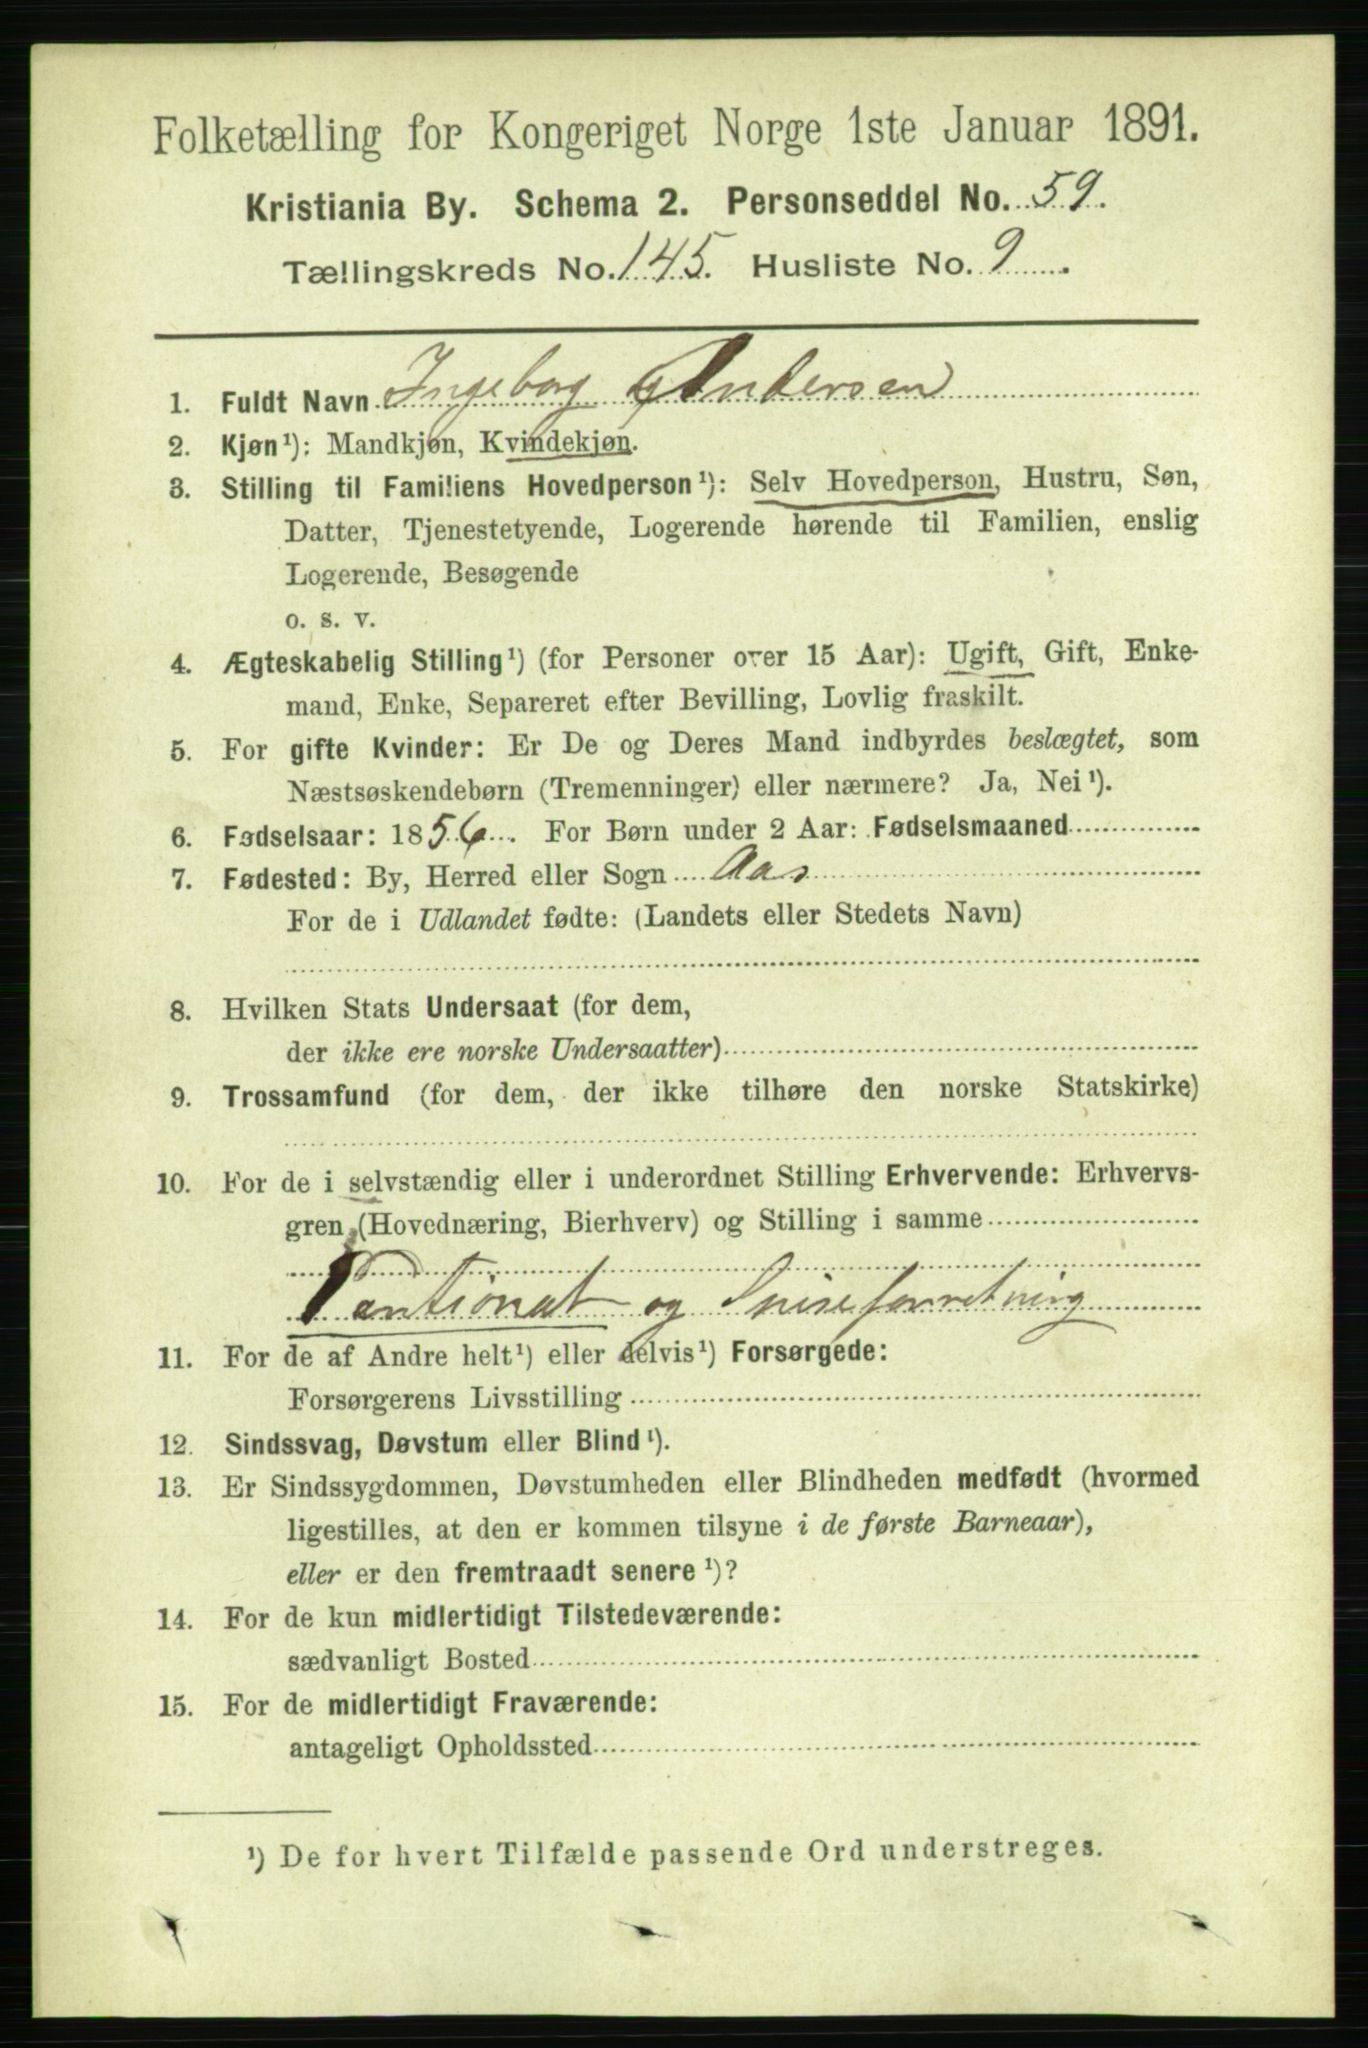 Folketælling for Kongeriget Norge 1ste Januar 1891.
Kristiania By. Schema 2. Personseddel No. 59.
Tællingskreds No. 145. Husliste No. 9
1. Fuldt Navn Ingeborg Andersen
2. Kjøn¹): Mandkjøn, Kvindekjøn.
3. Stilling til Familiens Hovedperson¹): Selv Hovedperson, Hustru, Søn,
Datter, Tjenestetyende, Logerende hørende til Familien, enslig
Logerende, Besøgende
o. s. v.
4. Ægteskabelig Stilling¹) (for Personer over 15 Aar): Ugift, Gift, Enke-
mand, Enke, Separeret efter Bevilling, Lovlig fraskilt.
5. For gifte Kvinder: Er De og Deres Mand indbyrdes beslægtet, som
Næstsøskendebørn (Tremenninger) eller nærmere? Ja, Nei¹).
6. Fødselsaar: 1856. For Børn under 2 Aar: Fødselsmaaned
7. Fødested: By, Herred eller Sogn Aas
For de i Udlandet fødte: (Landets eller Stedets Navn)
8. Hvilken Stats Undersaat (for dem,
der ikke ere norske Undersaatter)
9. Trossamfund (for dem, der ikke tilhøre den norske Statskirke)
10. For de i selvstændig eller i underordnet Stilling Erhvervende: Erhvervs-
gren (Hovednæring, Bierhverv) og Stilling i samme
Pentionat og Spiseforretning
11. For de af Andre helt¹) eller delvis¹) Forsørgede:
Forsørgerens Livsstilling
12. Sindssvag, Døvstum eller Blind¹).
13. Er Sindssygdommen, Døvstumheden eller Blindheden medfødt (hvormed
ligestilles, at den er kommen tilsyne i de første Barneaar),
eller er den fremtraadt senere¹)?
14. For de kun midlertidigt Tilstedeværende:
sædvanligt Bosted
15. For de midlertidigt Fraværende:
antageligt Opholdssted
¹) De for hvert Tilfælde passende Ord understreges.